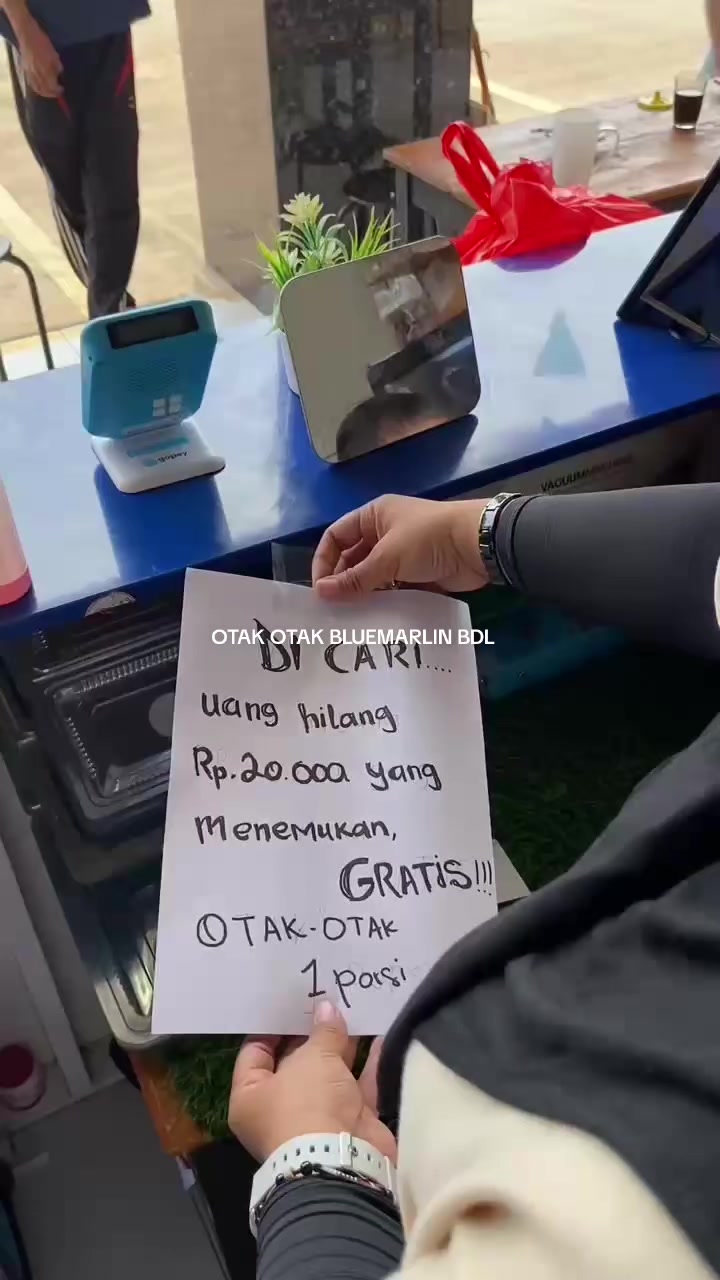 VACUUM
gopay
OTAK OTAK BLUEMARLIN BDL
DI CARI....
uang hilang
Rp.20.000 yang
Menemukan,
GRATIS!!!
OTAK-OTAK
1 porsi